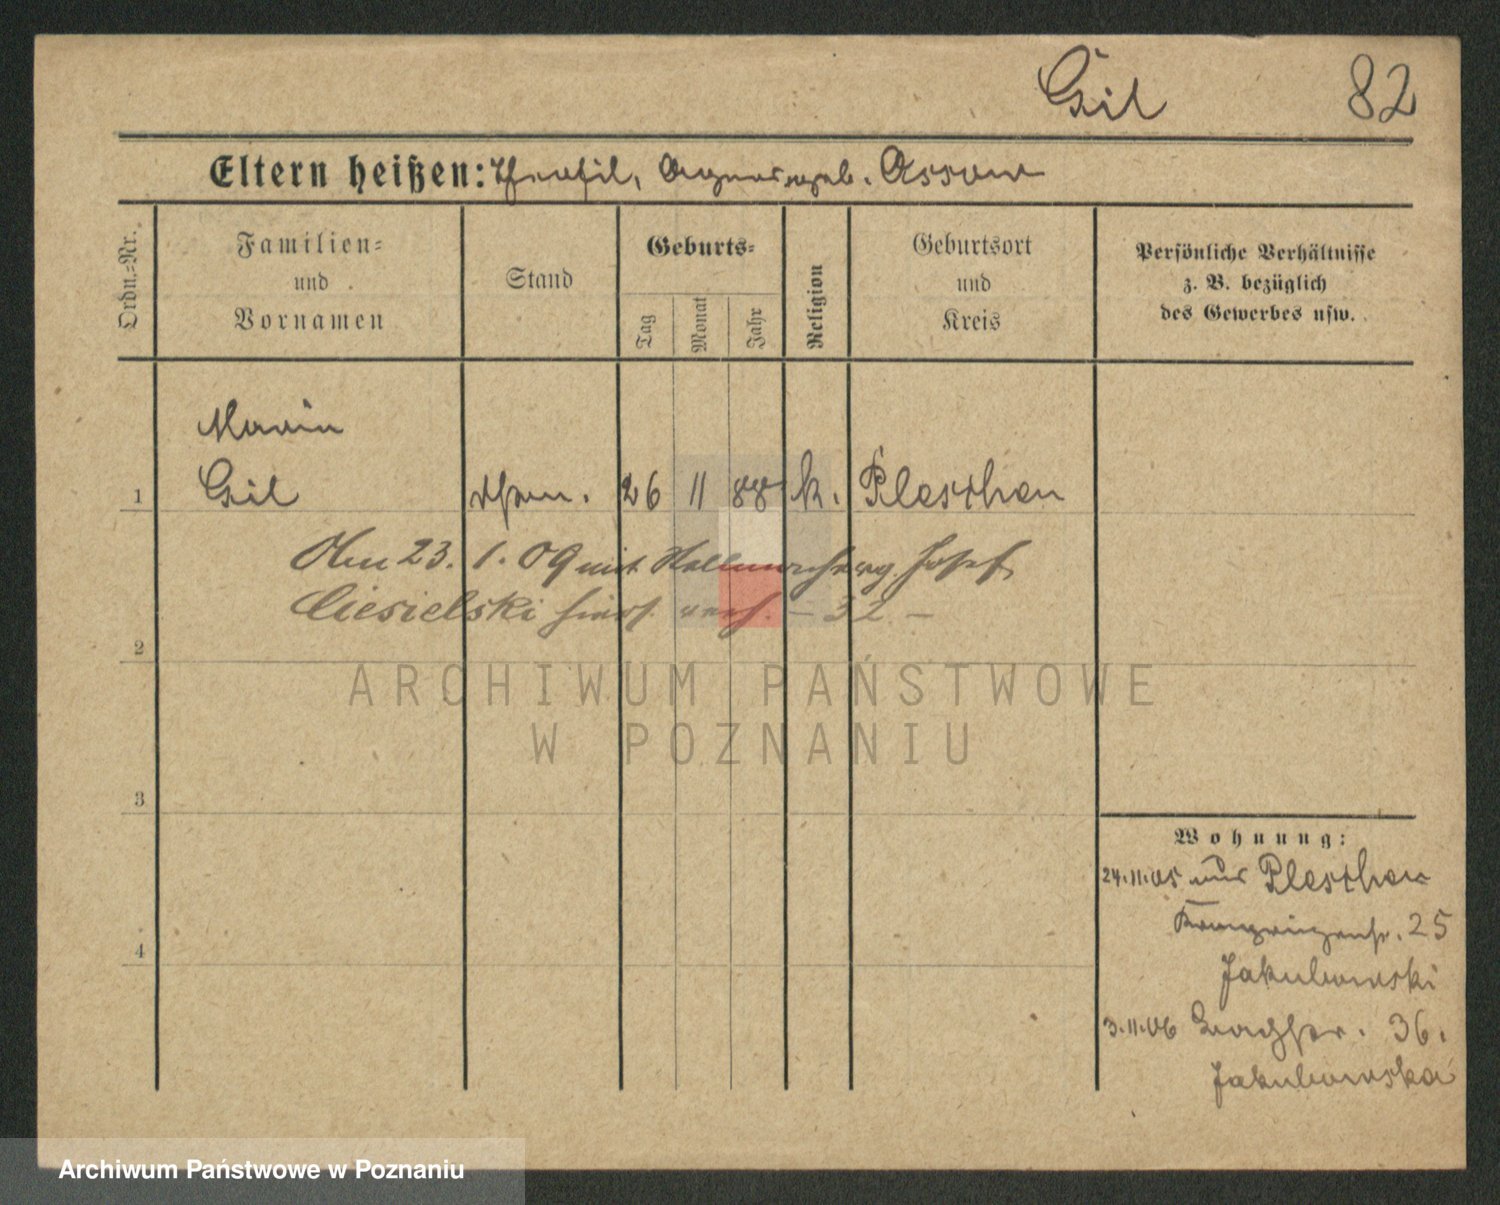 Gil 82
Eltern heißen: Theofil, Agnes, geb.
Ordn.=Nr.
Familien=
und
Vornamen
Stand
Geburts=
Tag
Monat
Jahr
Religion
Geburtsort
und
Kreis
Persönliche Verhältnisse
z. B. bezüglich
des Gewerbes usw.
Marie
1 Gil 26 11 88 k. Pleschen
Am 23. 1. 09 mit Josef
Ciesielski hiers. verh. – 32 –
2
3
4
Wohnung:
24.11.05 aus Pleschen
Kronprinzenstr. 25
Jakubowski
3.11.06 36.
Jakubowska
ARCHIWUM PAŃSTWOWE
W POZNANIU
Archiwum Państwowe w Poznaniu